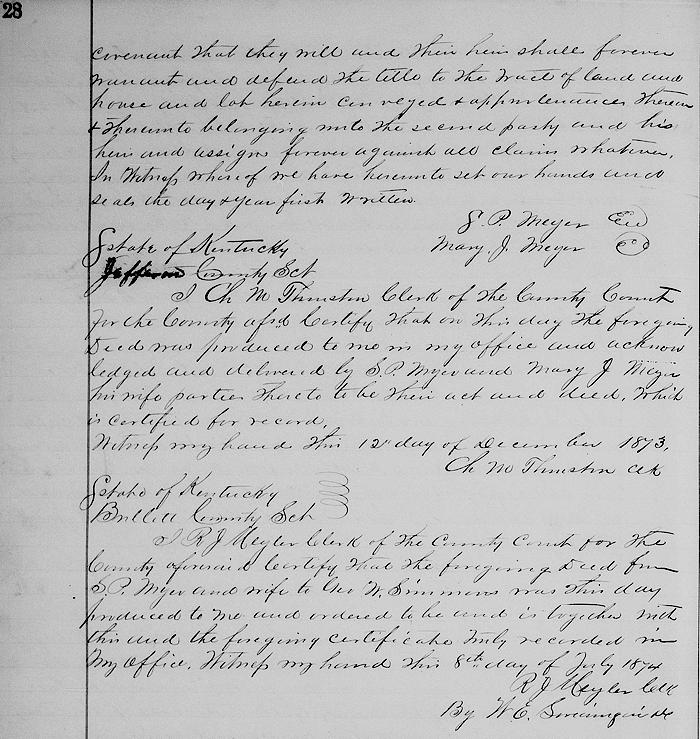 28
covenant that they will and their heirs shall forever
warrant and defend the title to the tract of land and
house and lot herein conveyed & appurtenances therein
& thereunto belonging unto the second party and his
heirs and assigns forever against all claims whatever.
In Witness whereof we have hereunto set our hands and
seals the day & year first written.
S. P. Meyer
Mary. J. Meyer
State of Kentucky
Jefferson County Sct
I Ch M Thruston Clerk of the County Court
for the County afsd Certify that on this day the foregoing
Deed was produced to me in my office and acknow
ledged and delivered by S. P. Myer and Mary J Meyer
his wife parties thereto to be their act and deed. Which
is certified for record.
Witness my hand this 12" day of December 1873.
Ch M Thruston Clk
State of Kentucky
Bullitt County Sct
I R J Meyler Clerk of the County Court for the
County aforesaid Certify that the foregoing Deed from
S. P. Myer and wife to Geo W. Simmons was this day
produced to me and ordered to be and is together with
this and the foregoing certificate truly recorded in
my office. Witness my hand this 8th day of July 1874
R J Meyler Clk
By W. E.